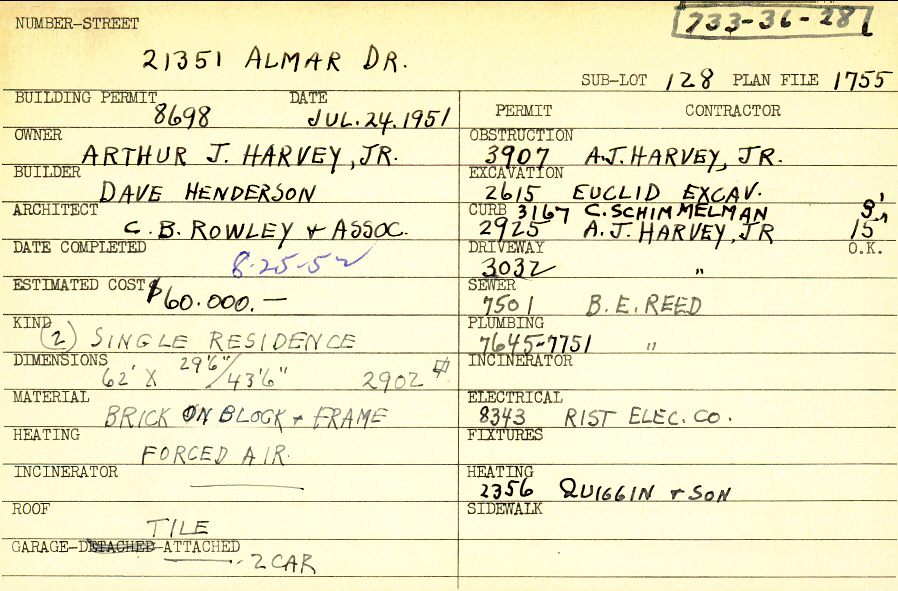 NUMBER-STREET
733-36-28
21351 ALMAR DR.
SUB-LOT 128 PLAN FILE 1755
BUILDING PERMIT DATE
8698 JUL.24.1951
OWNER
ARTHUR J. HARVEY, JR.
BUILDER
DAVE HENDERSON
ARCHITECT
C.B. ROWLEY & ASSOC.
DATE COMPLETED
8-25-52
ESTIMATED COST
$60.000.—
KIND
(2) SINGLE RESIDENCE
DIMENSIONS
62' X 29'6"/43'6" 2902
MATERIAL
BRICK ON BLOCK & FRAME
HEATING
FORCED AIR.
INCINERATOR
ROOF
TILE
GARAGE-DETACHED-ATTACHED
2 CAR
PERMIT CONTRACTOR
OBSTRUCTION
3907 A.J. HARVEY, JR.
EXCAVATION
2615 EUCLID EXCAV.
CURB 3167 C. SCHIMMELMAN
2925 A.J. HARVEY, JR 15'
O.K.
DRIVEWAY
3032 "
SEWER
7501 B.E. REED
PLUMBING
7645-7751 "
INCINERATOR
ELECTRICAL
8343 RIST ELEC. CO.
FIXTURES
HEATING
2356 QUIGGIN & SON
SIDEWALK